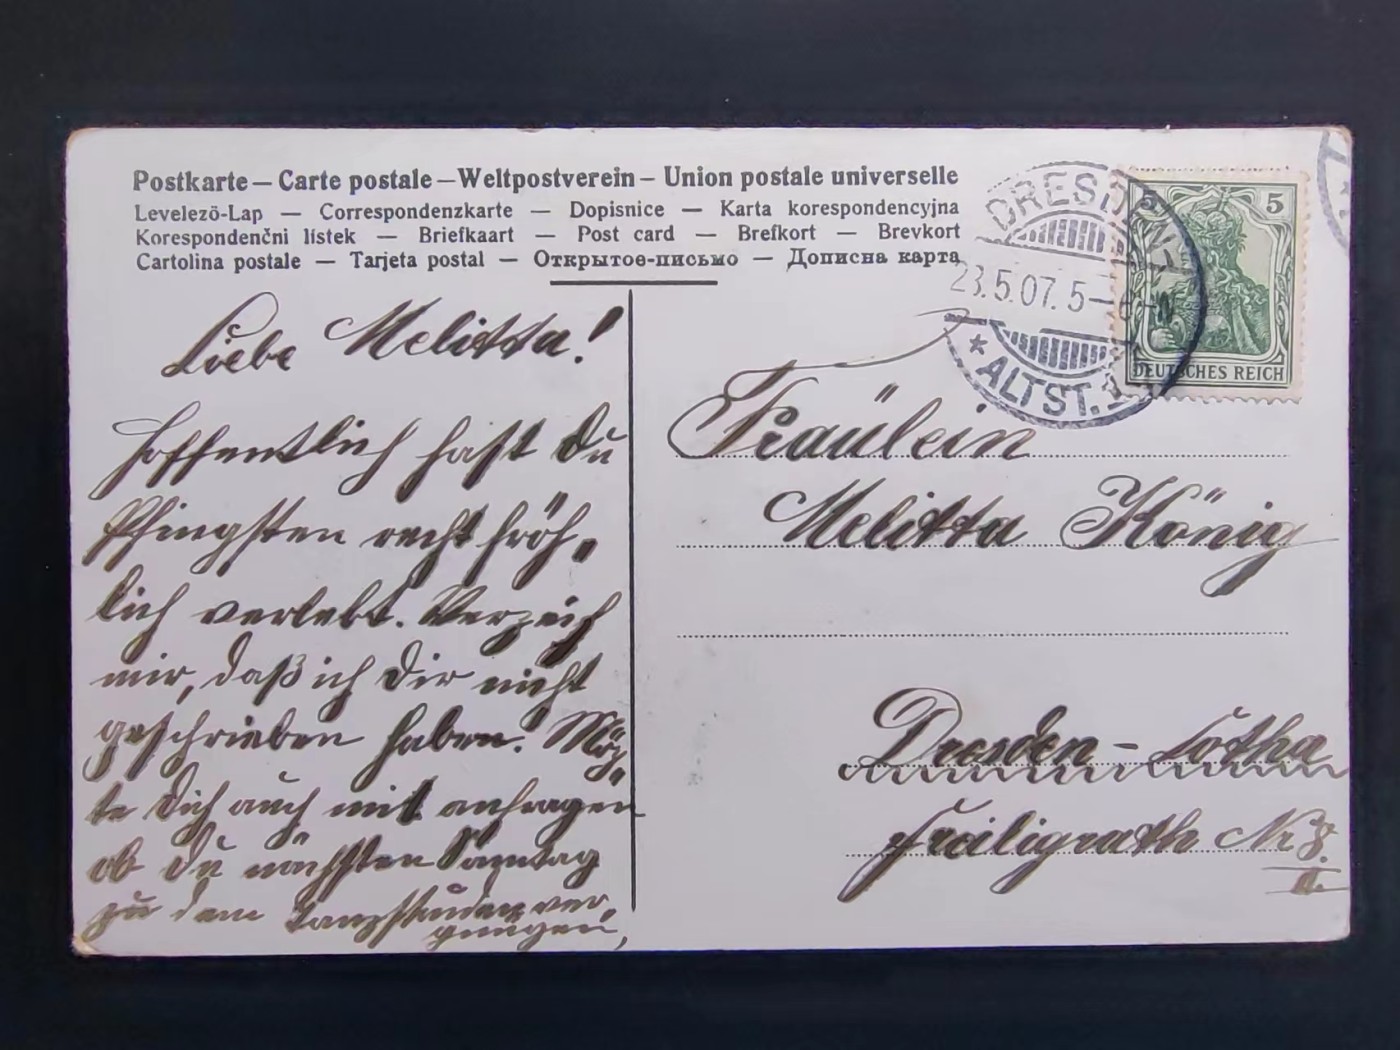 Postkarte — Carte postale — Weltpostverein — Union postale universelle
Levelező-Lap — Correspondenzkarte — Dopisnice — Karta korespondencyjna
Korespondenčni listek — Briefkaart — Post card — Brefkort — Brevkort
Cartolina postale — Tarjeta postal — Открытое-письмо — Дописна карта
DRESDEN
23.5.07.5-6 N
* ALTST. 1
5 5
DEUTSCHES REICH
Liebe Melitta!
Hoffentlich hast Du
Pfingsten recht fröh-
lich verlebt. Verzeih
mir, daß ich Dir nicht
geschrieben haben. Möch-
te Dich auch mit anfragen
ob Du nächsten Sonntag
zu dem Tanzstundenver-
gnügen,
Fräulein
Melitta König
Dresden - Cotha
Freiligrath Nr 8.
II.